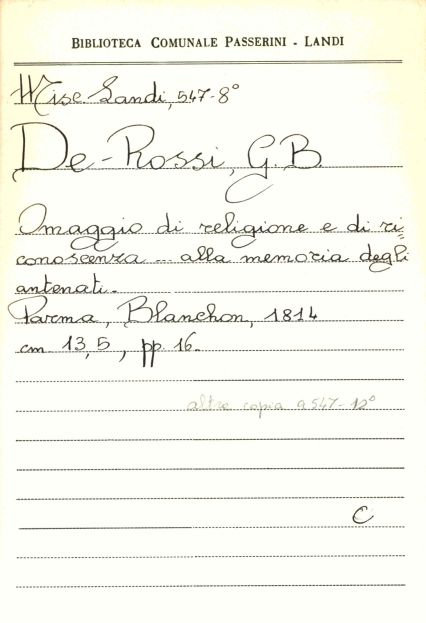 BIBLIOTECA COMUNALE PASSERINI - LANDI
Misc. Landi, 547-8°
De-Rossi, G.B.
Omaggio di religione e di ri=
conoscenza ... alla memoria degli
antenati.
Parma, Blanchon, 1814
cm 13,5, pp. 16.
altra copia a 547-12°
C